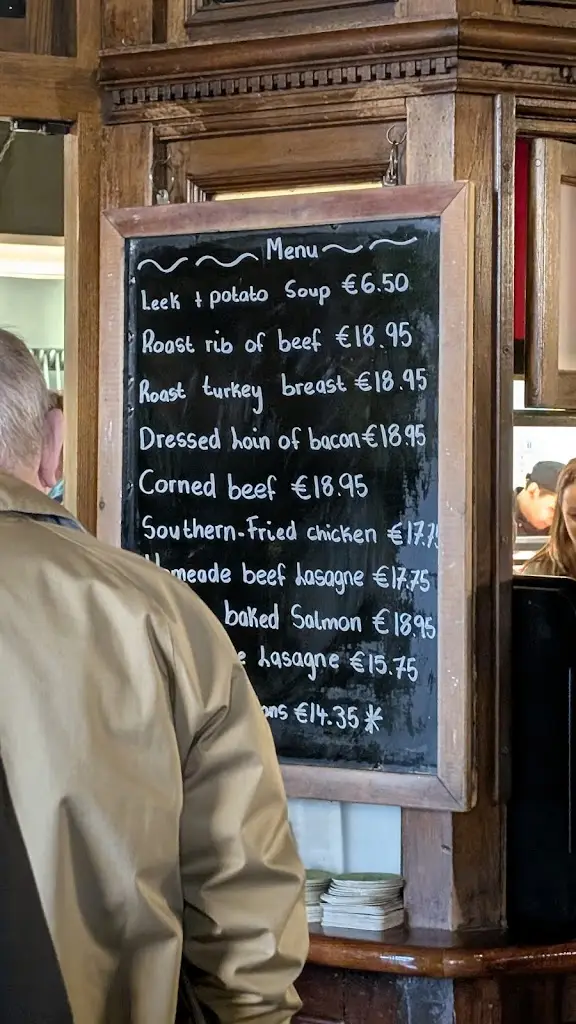 Menu
Leek + potato Soup €6.50
Roast rib of beef €18.95
Roast turkey breast €18.95
Dressed loin of bacon €18.95
Corned beef €18.95
Southern-Fried chicken €17.75
beef Lasagne €17.75
baked Salmon €18.95
Lasagne €15.75
€14.35 *